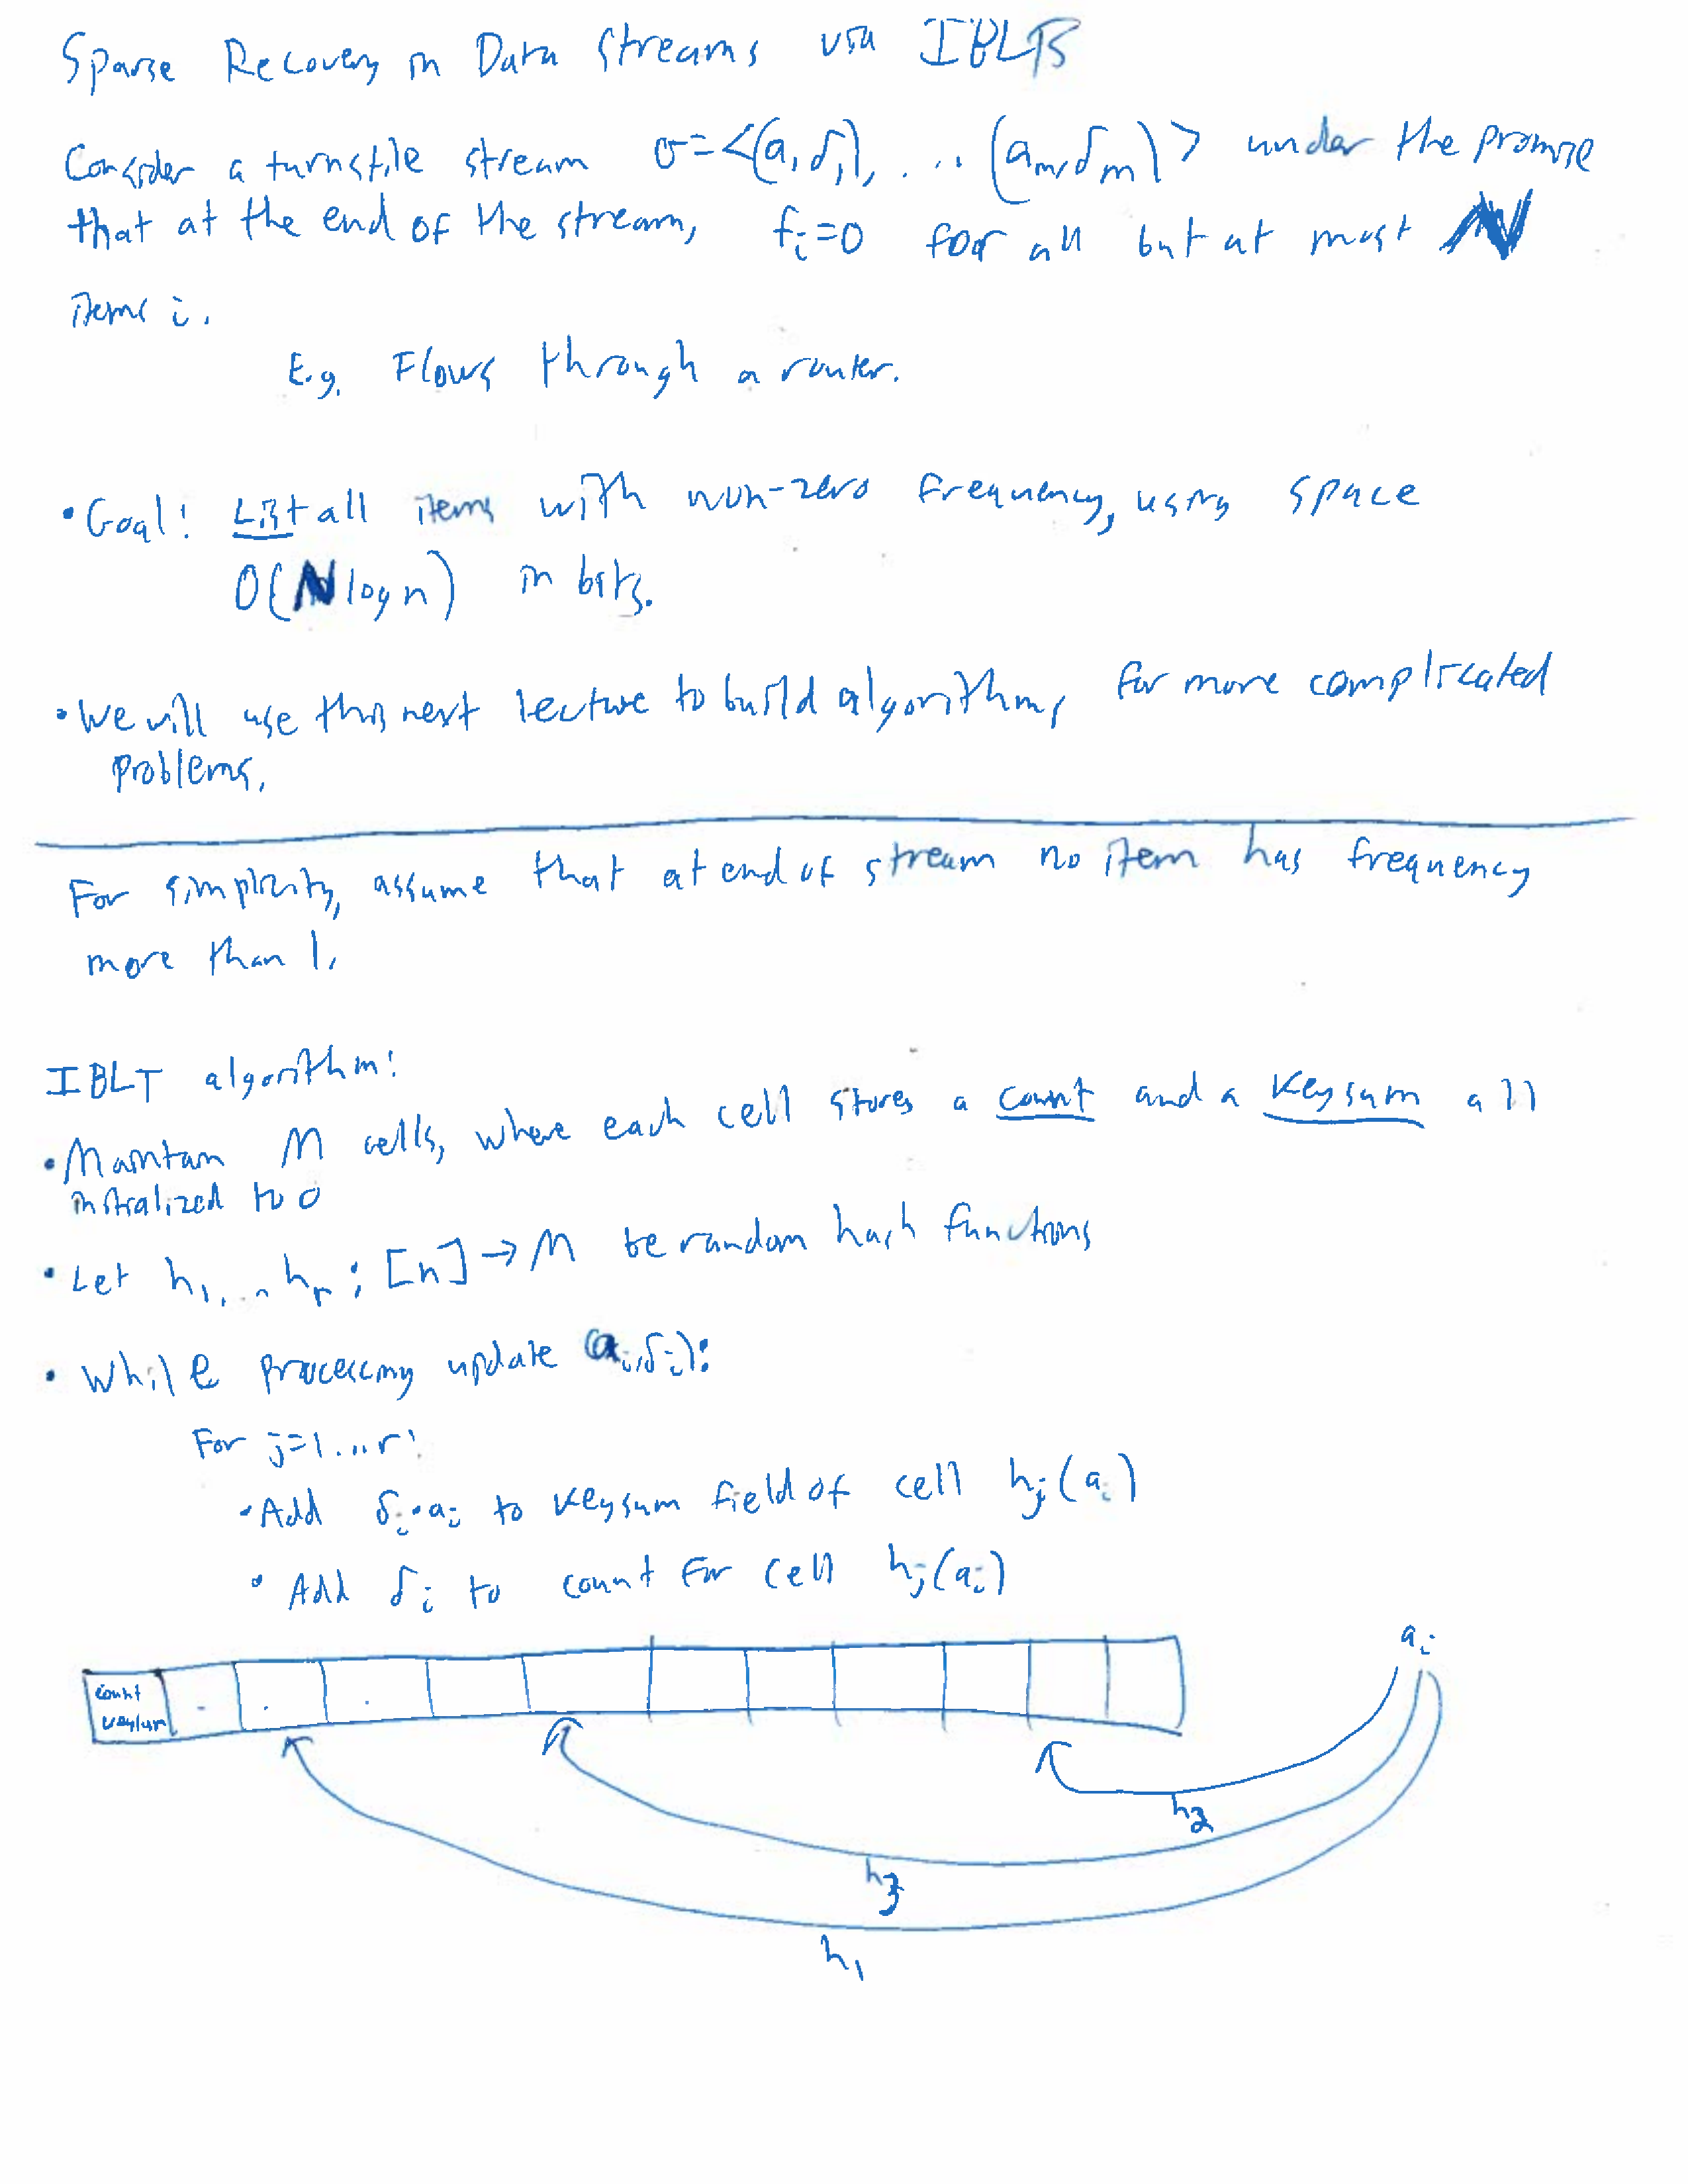 Sparse Recovery in Data Streams via IBLTs
Consider a turnstile stream σ=<(a₁,δ₁), ... (aₘ,δₘ)> under the promise
that at the end of the stream, fᵢ=0 for all but at most N
items i.
E.g. Flows through a router.
• Goal: List all items with non-zero frequency, using space
O(N log n) in bits.
• We will use this next lecture to build algorithms for more complicated
problems.
For simplicity, assume that at end of stream no item has frequency
more than 1.
IBLT algorithm:
• Maintain M cells, where each cell stores a count and a keysum all
initialized to 0
• Let h₁,...hᵣ: [n]→M be random hash functions
• While processing update (aᵢ,δᵢ):
For j=1...r:
• Add δᵢ·aᵢ to keysum field of cell hⱼ(aᵢ)
• Add δᵢ to count for cell hⱼ(aᵢ)
aᵢ
count
keysum
h₂
h₃
h₁